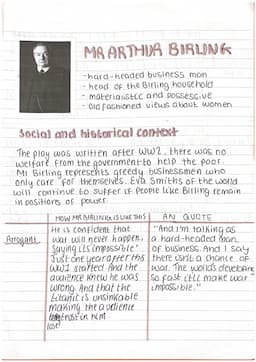 MR ARTHUR BIRLING
- hard-headed business man
- head of the Birling household
- materialistic and possessive
- old fashioned views about women
Social and historical context
The play was written after WW2, there was no
welfare from the government to help the poor.
Mr Birling represents greedy businessmen who
only care for themselves. Eva Smiths of the world
will continue to suffer if people like Birling remain
in positions of power.
HOW MR BIRLING IS LIKE THIS
AN QUOTE
Arrogant
He is confident that
war will never happen,
saying its impossible!
Just one year after this
WW1 started! And the
audience knew he was
wrong. And that the
titanic is unsinkable
making the audience
in him
"And I'm talking as
a hard-headed man
of business. And I say
there isn't a chance of
war. The worlds developing
so fast it'll make war
impossible."